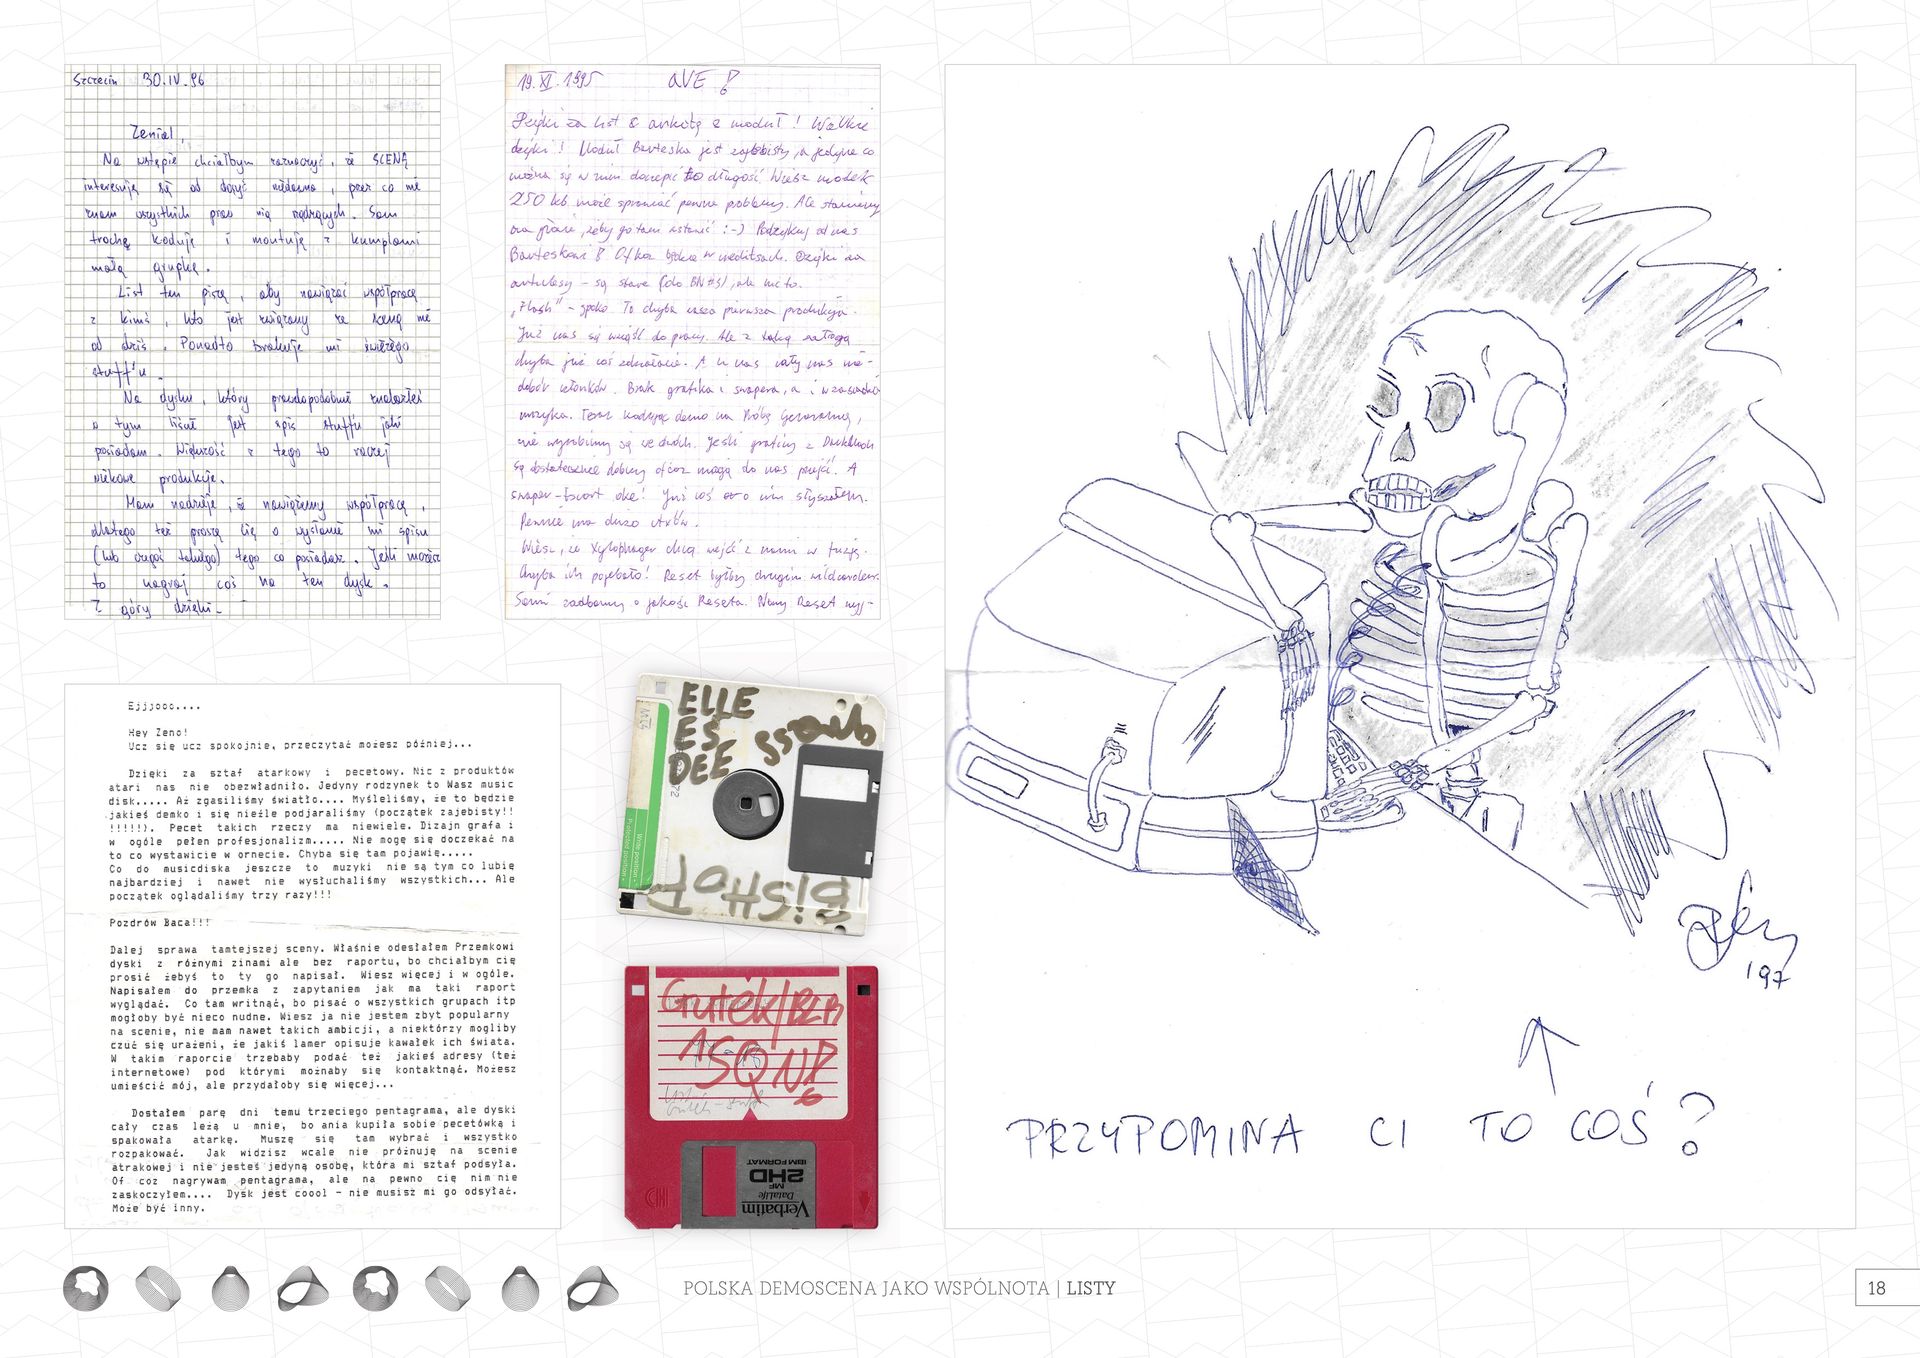 Szczecin 30.IV.96
Zenial,
Na wstępie chciałbym zaznaczyć, że SCENĄ
interesuję się od dość niedawna, przez co nie
znam wszystkich praw nią rządzących. Sam
trochę koduję i montuję z kumplami
małą grupkę.
List ten piszę, aby nawiązać współpracę
z kimś, kto jest związany ze sceną nie
od dziś. Ponadto brakuje mi świeżego
stuff'u.
Na dysku, który prawdopodobnie znalazłeś
w tym liście jest spis stuffu jaki
posiadam. Większość z tego to raczej
wiekowe produkcje.
Mam nadzieję, że nawiążemy współpracę,
dlatego też proszę Cię o wysłanie mi spisu
(lub czegoś takiego) tego co posiadasz. Jeśli możesz
to nagraj coś na ten dysk.
Z góry dzięki.
19.XI.1995 aVE !
Dzięki za list & ankietę & moduł! Wielkie
dzięki! Moduł Barteska jest zajebisty, a jedyne co
można się w nim doczepić to długość. Wiesz modek
250 kb może sprawiać pewne problemy. Ale staniemy
na głowie, żeby go tam wstawić :-) Podziękuj od nas
Barteskowi! Ofkoz będzie w creditsach. Dzięki za
artykuły - są stare (do BN#3), ale nic to.
„Flash" - spoko. To chyba wasza pierwsza produkcja.
Już was się wziąść do pracy. Ale z taką załogą
chyba już coś zdziałacie. A u nas cały czas nie-
dobór członków. Brak grafika i swapera, a i w zasadzie
muzyka. Teraz kodując demo na Próbę Generalną,
nie wyrobimy się we dwóch. Jeśli graficy z
są dostatecznie dobrzy ofcoz mogą do nas przejść. A
swaper-Escort oké! Już coś o nim słyszałem.
Pewnie ma dużo ctx'ów.
Wiesz, że Xylophager chcą wejść z nami w fuzję.
Chyba ich pojebało! Reset byłby drugim
Sami zadbamy o jakość Reseta. Nowy Reset wyj-
Ejjjooo....
Hey Zeno!
Ucz się ucz spokojnie, przeczytać możesz później...
Dzięki za sztaf atarkowy i pecetowy. Nic z produktów
atari nas nie obezwładniło. Jedyny rodzynek to Wasz music
disk..... Aż zgasiliśmy światło.... Myśleliśmy, że to będzie
jakieś demko i się nieźle podjaraliśmy (początek zajebisty!!
!!!!!!). Pecet takich rzeczy ma niewiele. Dizajn grafa i
w ogóle pełen profesjonalizm..... Nie mogę się doczekać na
to co wystawicie w ornecie. Chyba się tam pojawię.....
Co do musicdiska jeszcze to muzyki nie są tym co lubię
najbardziej i nawet nie wysłuchaliśmy wszystkich... Ale
początek oglądaliśmy trzy razy!!!
Pozdrów Baca!!!
Dalej sprawa tamtejszej sceny. Właśnie odesłałem Przemkowi
dyski z różnymi zinami ale bez raportu, bo chciałbym cię
prosić żebyś to ty go napisał. Wiesz więcej i w ogóle.
Napisałem do przemka z zapytaniem jak ma taki raport
wyglądać. Co tam writnąć, bo pisać o wszystkich grupach itp
mogłoby być nieco nudne. Wiesz ja nie jestem zbyt popularny
na scenie, nie mam nawet takich ambicji, a niektórzy mogliby
czuć się urażeni, że jakiś lamer opisuje kawałek ich świata.
W takim raporcie trzebaby podać też jakieś adresy (też
internetowe) pod którymi możnaby się kontaktnąć. Możesz
umieścić mój, ale przydałoby się więcej...
Dostałem parę dni temu trzeciego pentagrama, ale dyski
cały czas leżą u mnie, bo ania kupiła sobie pecetówką i
spakowała atarkę. Muszę się tam wybrać i wszystko
rozpakować. Jak widzisz wcale nie próżnuję na scenie
atrakowej i nie jesteś jedyną osobę, która mi sztaf podsyła.
Of coz nagrywam pentagrama, ale na pewno cię nim nie
zaskoczyłem.... Dysk jest coool - nie musisz mi go odsyłać.
Może być inny.
ELLE
ES
DEE
BISHOP
Write position
Protected position
Gutek/BLA
1SQNP
6
Verbatim
DataLife
MF
2HD
IBM FORMAT
'97
PRZYPOMINA CI TO COŚ?
POLSKA DEMOSCENA JAKO WSPÓLNOTA | LISTY
18